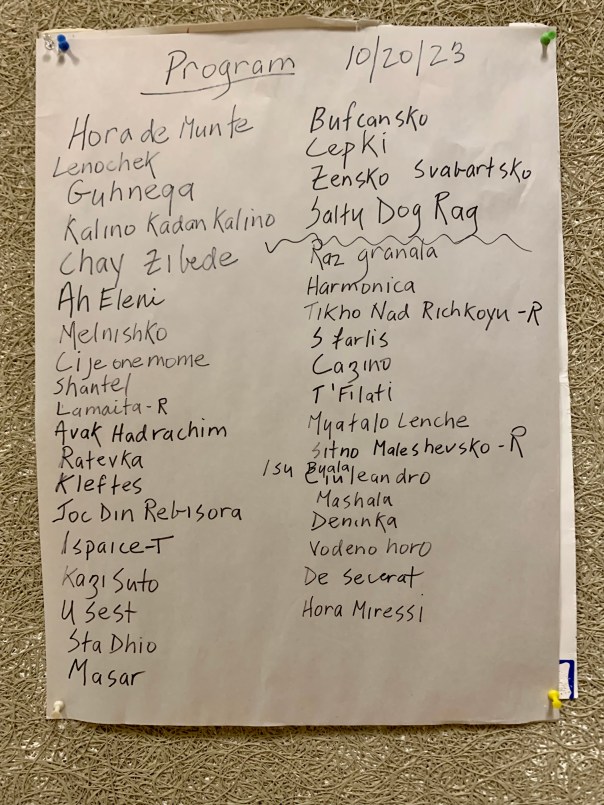 Program 10/20/23
Hora de Munte
Lenochek
Guhnega
Kalino Kadan Kalino
Chay Zibede
Ah Eleni
Melnishko
Cije onemome
Shantel
Lamaita-R
Avak Hadrachim
Ratevka
Kleftes
Joc Din Rebisora
Ispaice-T
Kazi Suto
U Sest
Sta Dhio
Masar
Bufcansko
Cepki
Zensko Svabartsko
Salty Dog Rag
Raz granala
Harmonica
Tikho Nad Richkoyu-R
Sfarlis
Cazino
T'Filati
Myatalo Lenche
Sitno Maleshevsko-R
Isu Byala
Ciuleandro
Mashala
Deninka
Vodeno horo
De Severat
Hora Miressi